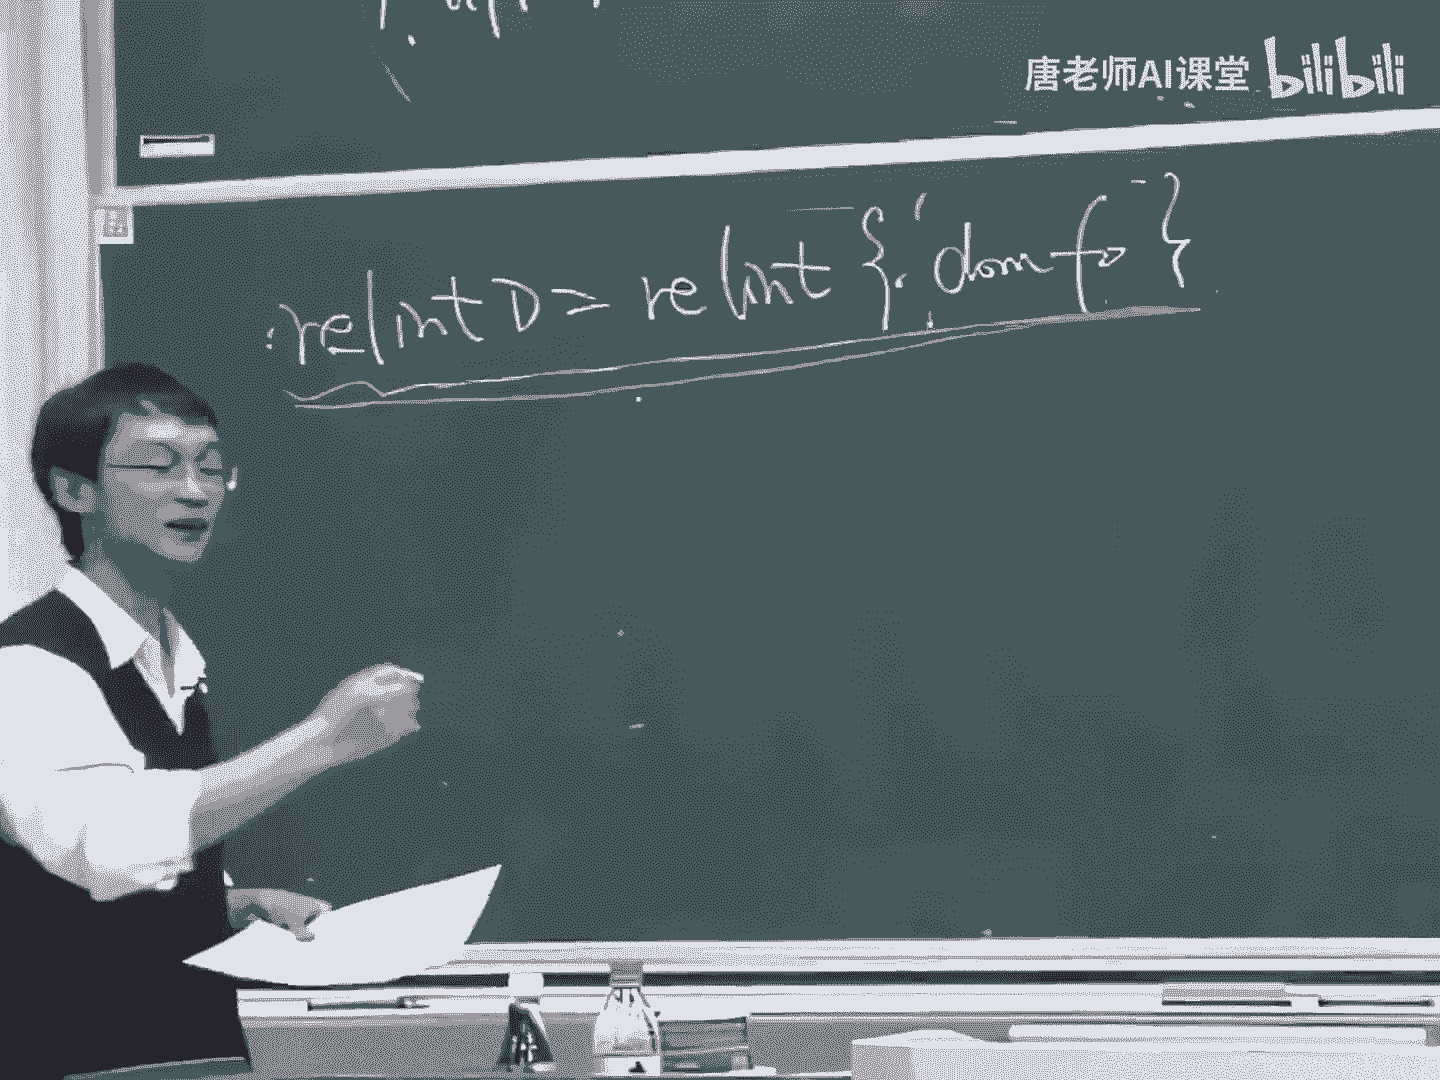 唐老师AI课堂 bilibili
relint D = relint { dom f₀ }